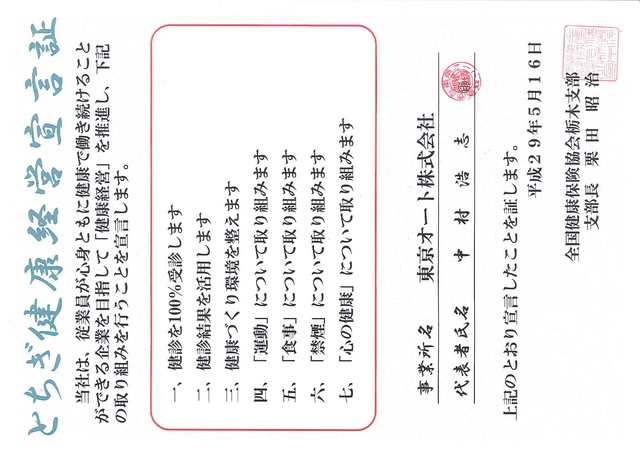 とちぎ健康経営宣言証
当社は、従業員が心身ともに健康で働き続けること
ができる企業を目指して「健康経営」を推進し、下記
の取り組みを行うことを宣言します。
一、健診を100％受診します
二、健診結果を活用します
三、健康づくり環境を整えます
四、「運動」について取り組みます
五、「食事」について取り組みます
六、「禁煙」について取り組みます
七、「心の健康」について取り組みます
事業所名 東京オート株式会社
代表者氏名 中村浩志
上記のとおり宣言したことを証します。
平成29年5月16日
全国健康保険協会栃木支部
支部長 栗田昭治